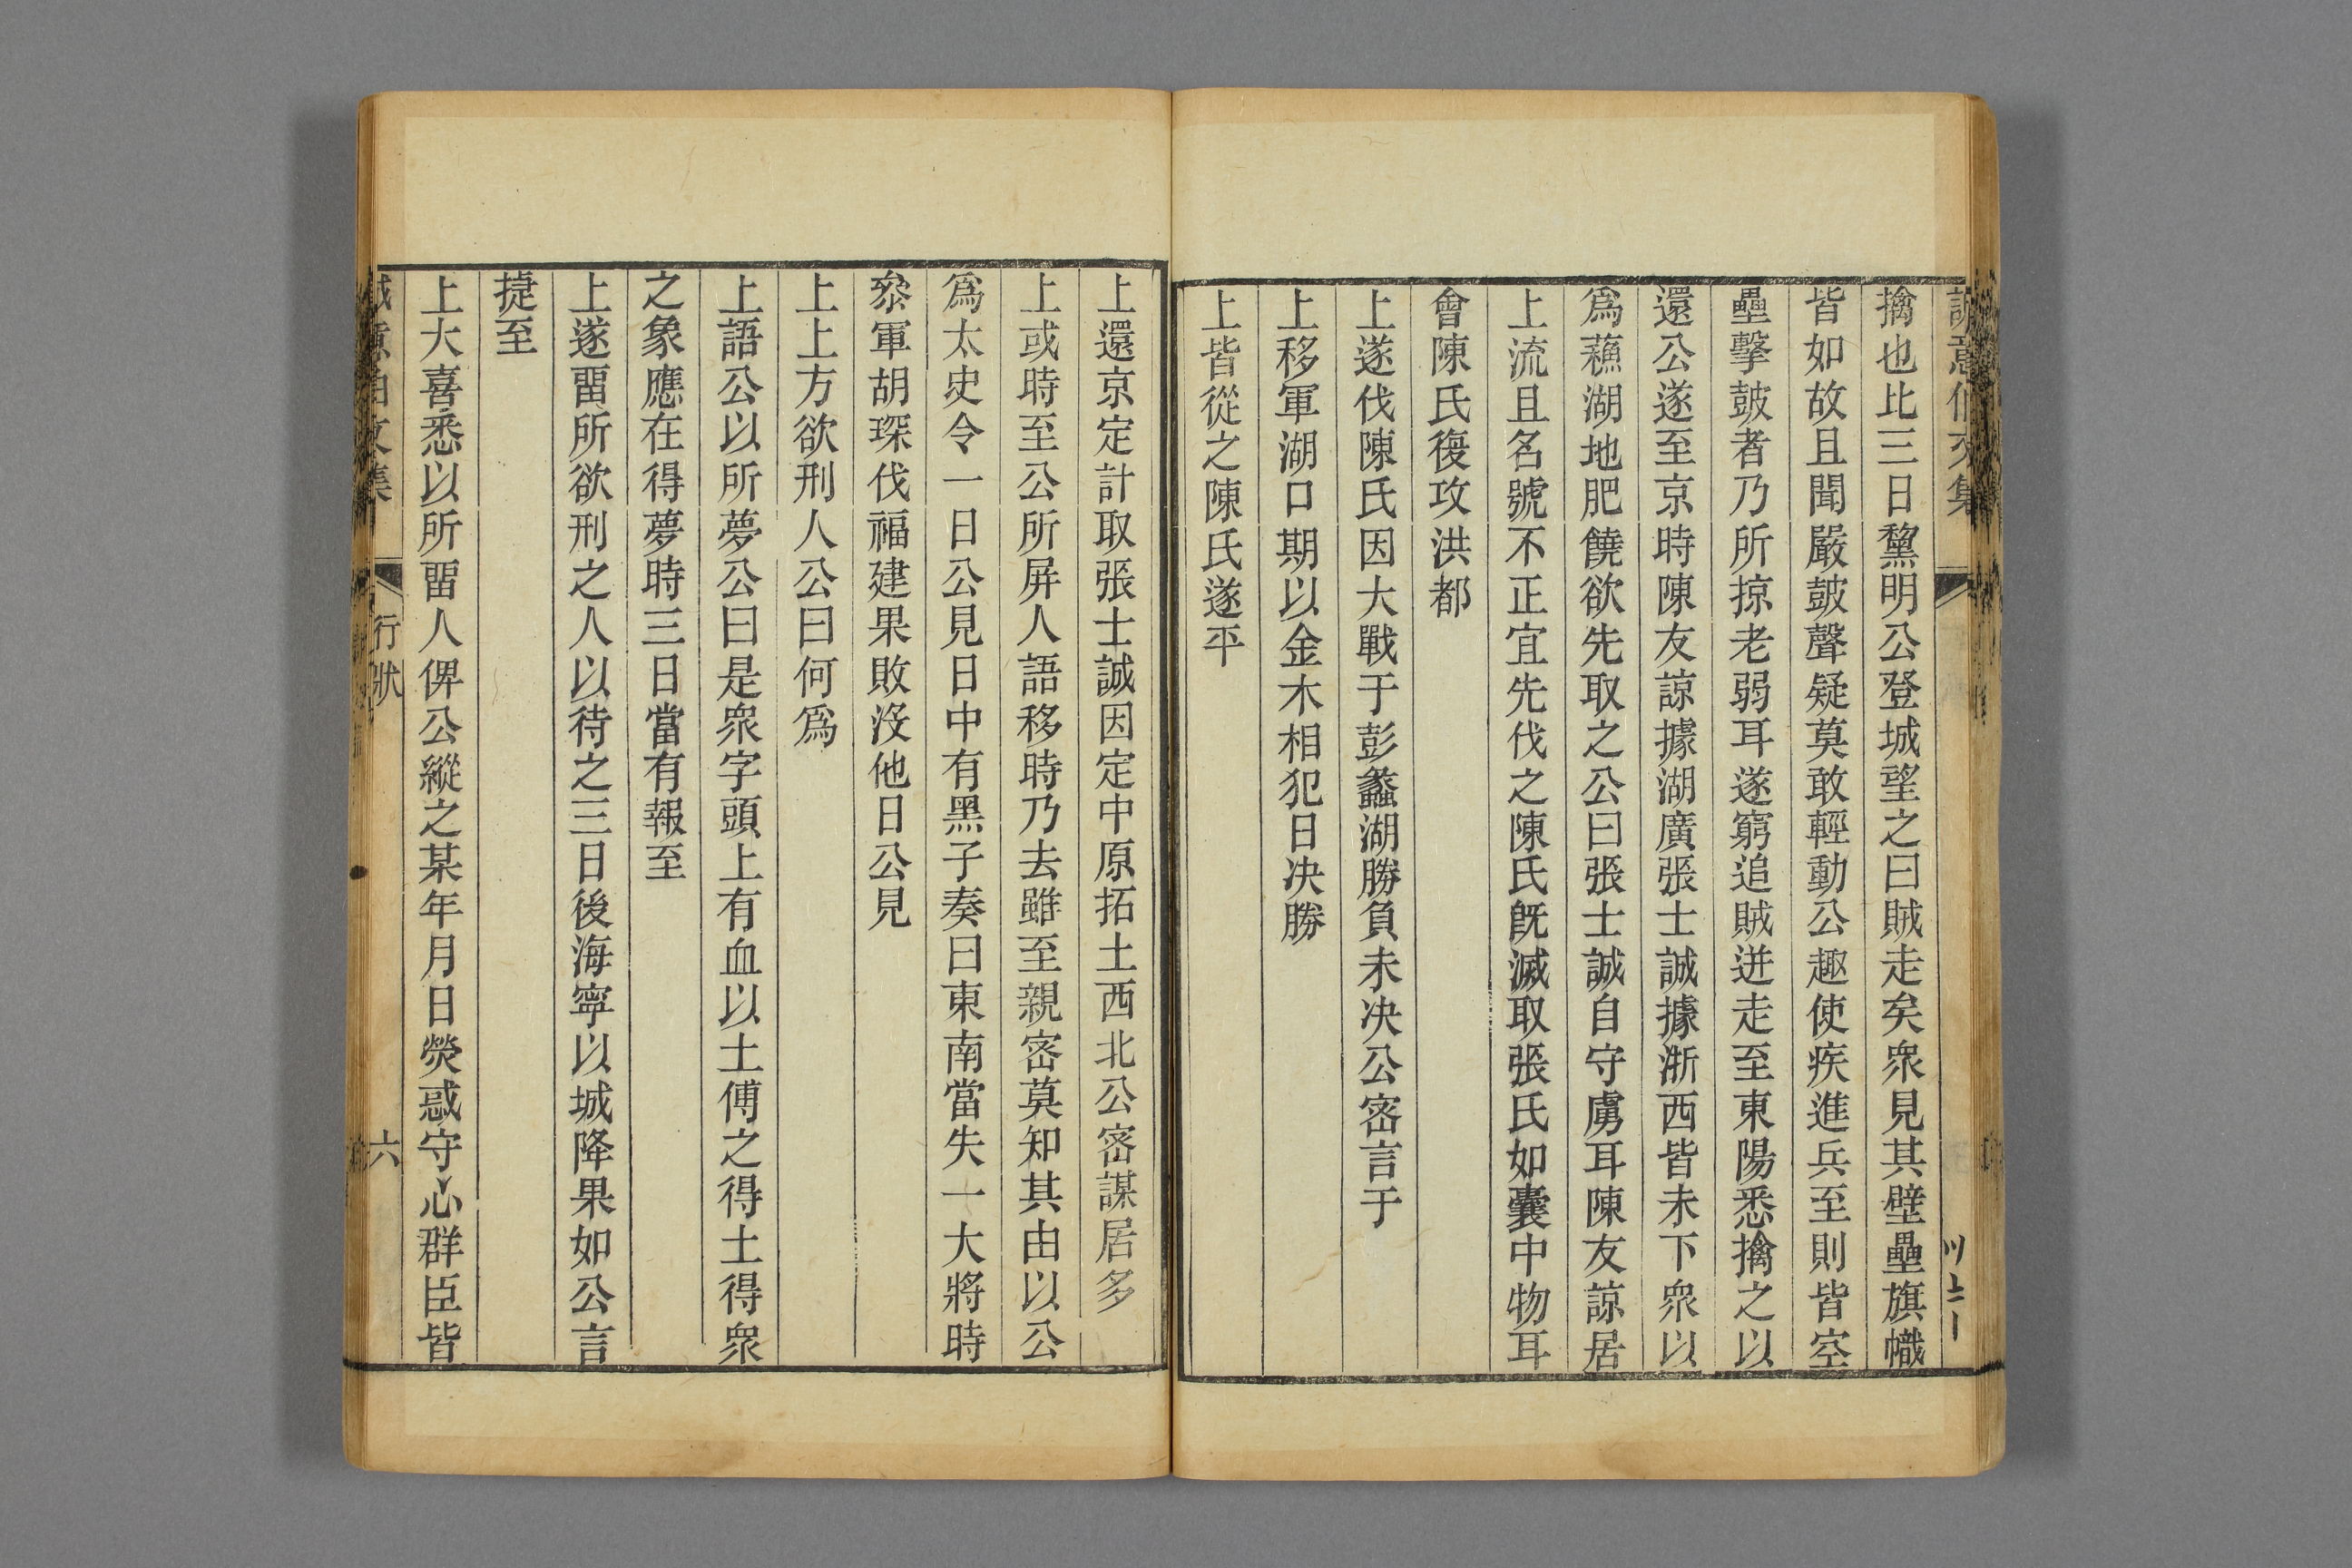 擒也比三日黧明公登城望之曰賊走矣衆見其壁壘旗幟
皆如故且聞嚴皷聲疑莫敢輕動公趣使疾進兵至則皆空
壘擊皷者乃所掠老弱耳遂窮追賊迸走至東陽悉擒之以
還公遂至京時陳友諒據湖廣張士誠據浙西皆未下衆以
爲蘓湖地肥饒欲先取之公曰張士誠自守虜耳陳友諒居
上流且名號不正宜先伐之陳氏旣滅取張氏如囊中物耳
會陳氏復攻洪都
上遂伐陳氏因大戰于彭蠡湖勝負未决公密言于
上移軍湖口期以金木相犯日决勝
上皆從之陳氏遂平
上還京定計取張士誠因定中原拓土西北公密謀居多
上或時至公所屏人語移時乃去雖至親密莫知其由以公
爲太史令一日公見日中有黑子奏曰東南當失一大將時
叅軍胡琛伐福建果敗沒他日公見
上上方欲刑人公曰何爲
上語公以所夢公曰是衆字頭上有血以土傅之得土得衆
之象應在得夢時三日當有報至
上遂畱所欲刑之人以待之三日後海寧以城降果如公言
捷至
上大喜悉以所畱人俾公縱之某年月日熒惑守心群臣皆
誠意伯文集 行狀 六